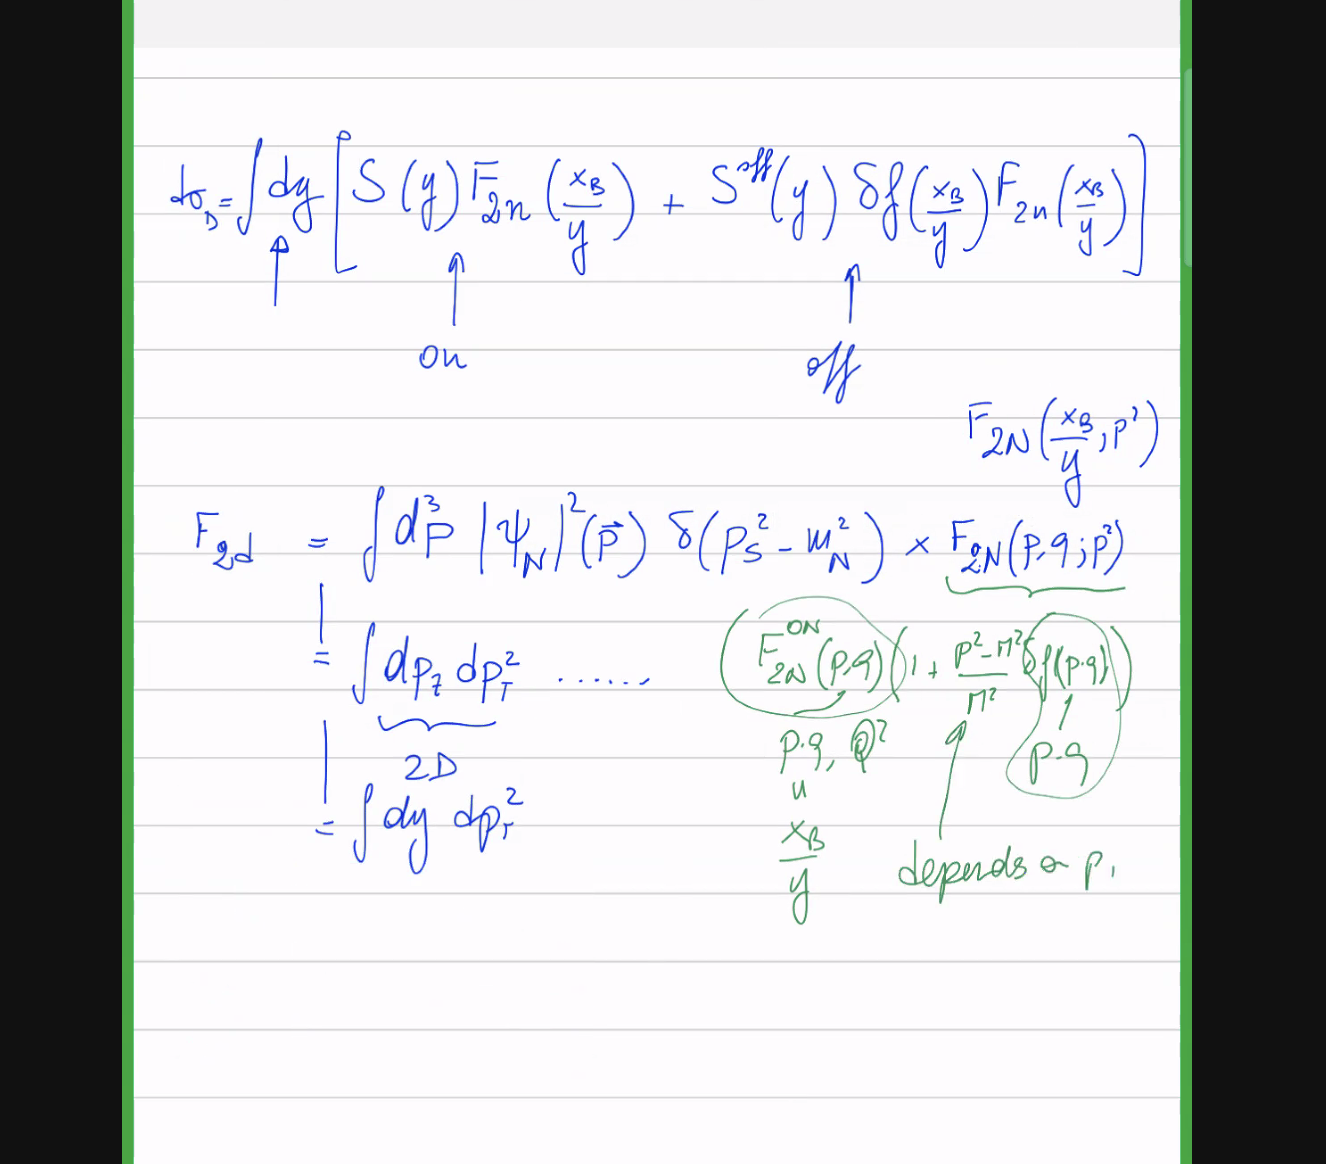 dσ_D = ∫ dy [ S(y) F_{2n}(x_B/y) + S^{off}(y) δf(x_B/y) F_{2n}(x_B/y) ]
on off
F_{2N}(x_B/y, p²)
F_{2d} = ∫ d³p |ψ_N|²(p⃗) δ(p_s² - m_N²) × F_{2N}(p.q; p²)
= ∫ dp_z dp_T² ...... ( F_{2N}^{ON}(p.q) (1 + (p²-M²)/M² δf(p.q)) )
2D p.q, Q² p.q
= ∫ dy dp_T²
x_B/y
depends on p,